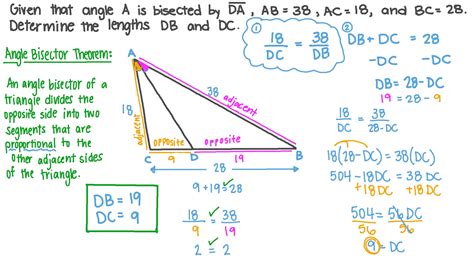 Given that angle A is bisected by DA, AB = 38, AC = 18, and BC = 28.
Determine the lengths DB and DC.
Angle Bisector Theorem:
An angle bisector of a
triangle divides the
opposite side into two
segments that are
proportional to the
other adjacent sides
of the triangle.
DB = 19
DC = 9
A
18
adjacent
38
adjacent
opposite
opposite
C
9
D
19
B
28
9 + 19 = 28
18/9 = 38/19
2 = 2
①
18/DC = 38/DB
②
DB + DC = 28
-DC -DC
DB = 28 - DC
19 = 28 - 9
18/DC = 38/28-DC
18(28-DC) = 38(DC)
504 - 18DC = 38DC
+18DC +18DC
504 = 56DC
56 56
9 = DC